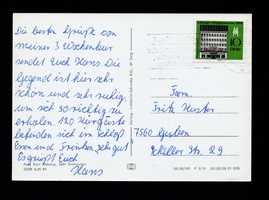 Die besten Grüße von
meiner 3 Wochenkur
sendet Euch Hans. Die
Gegend ist hier sehr
schön und sehr ruhig
um sich so richtig zu
erholen. 120 Kurgäste
befinden sich im Schloß
Essen und Trinken sehr gut
Es grüßt Euch
Hans
DDR
10
Fam.
Fritz
7560 Guben
Schiller Str. 29